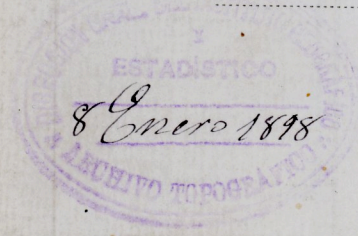 Y
ESTADÍSTICO
8 Enero 1898
ARCHIVO TOPOGRAFICO